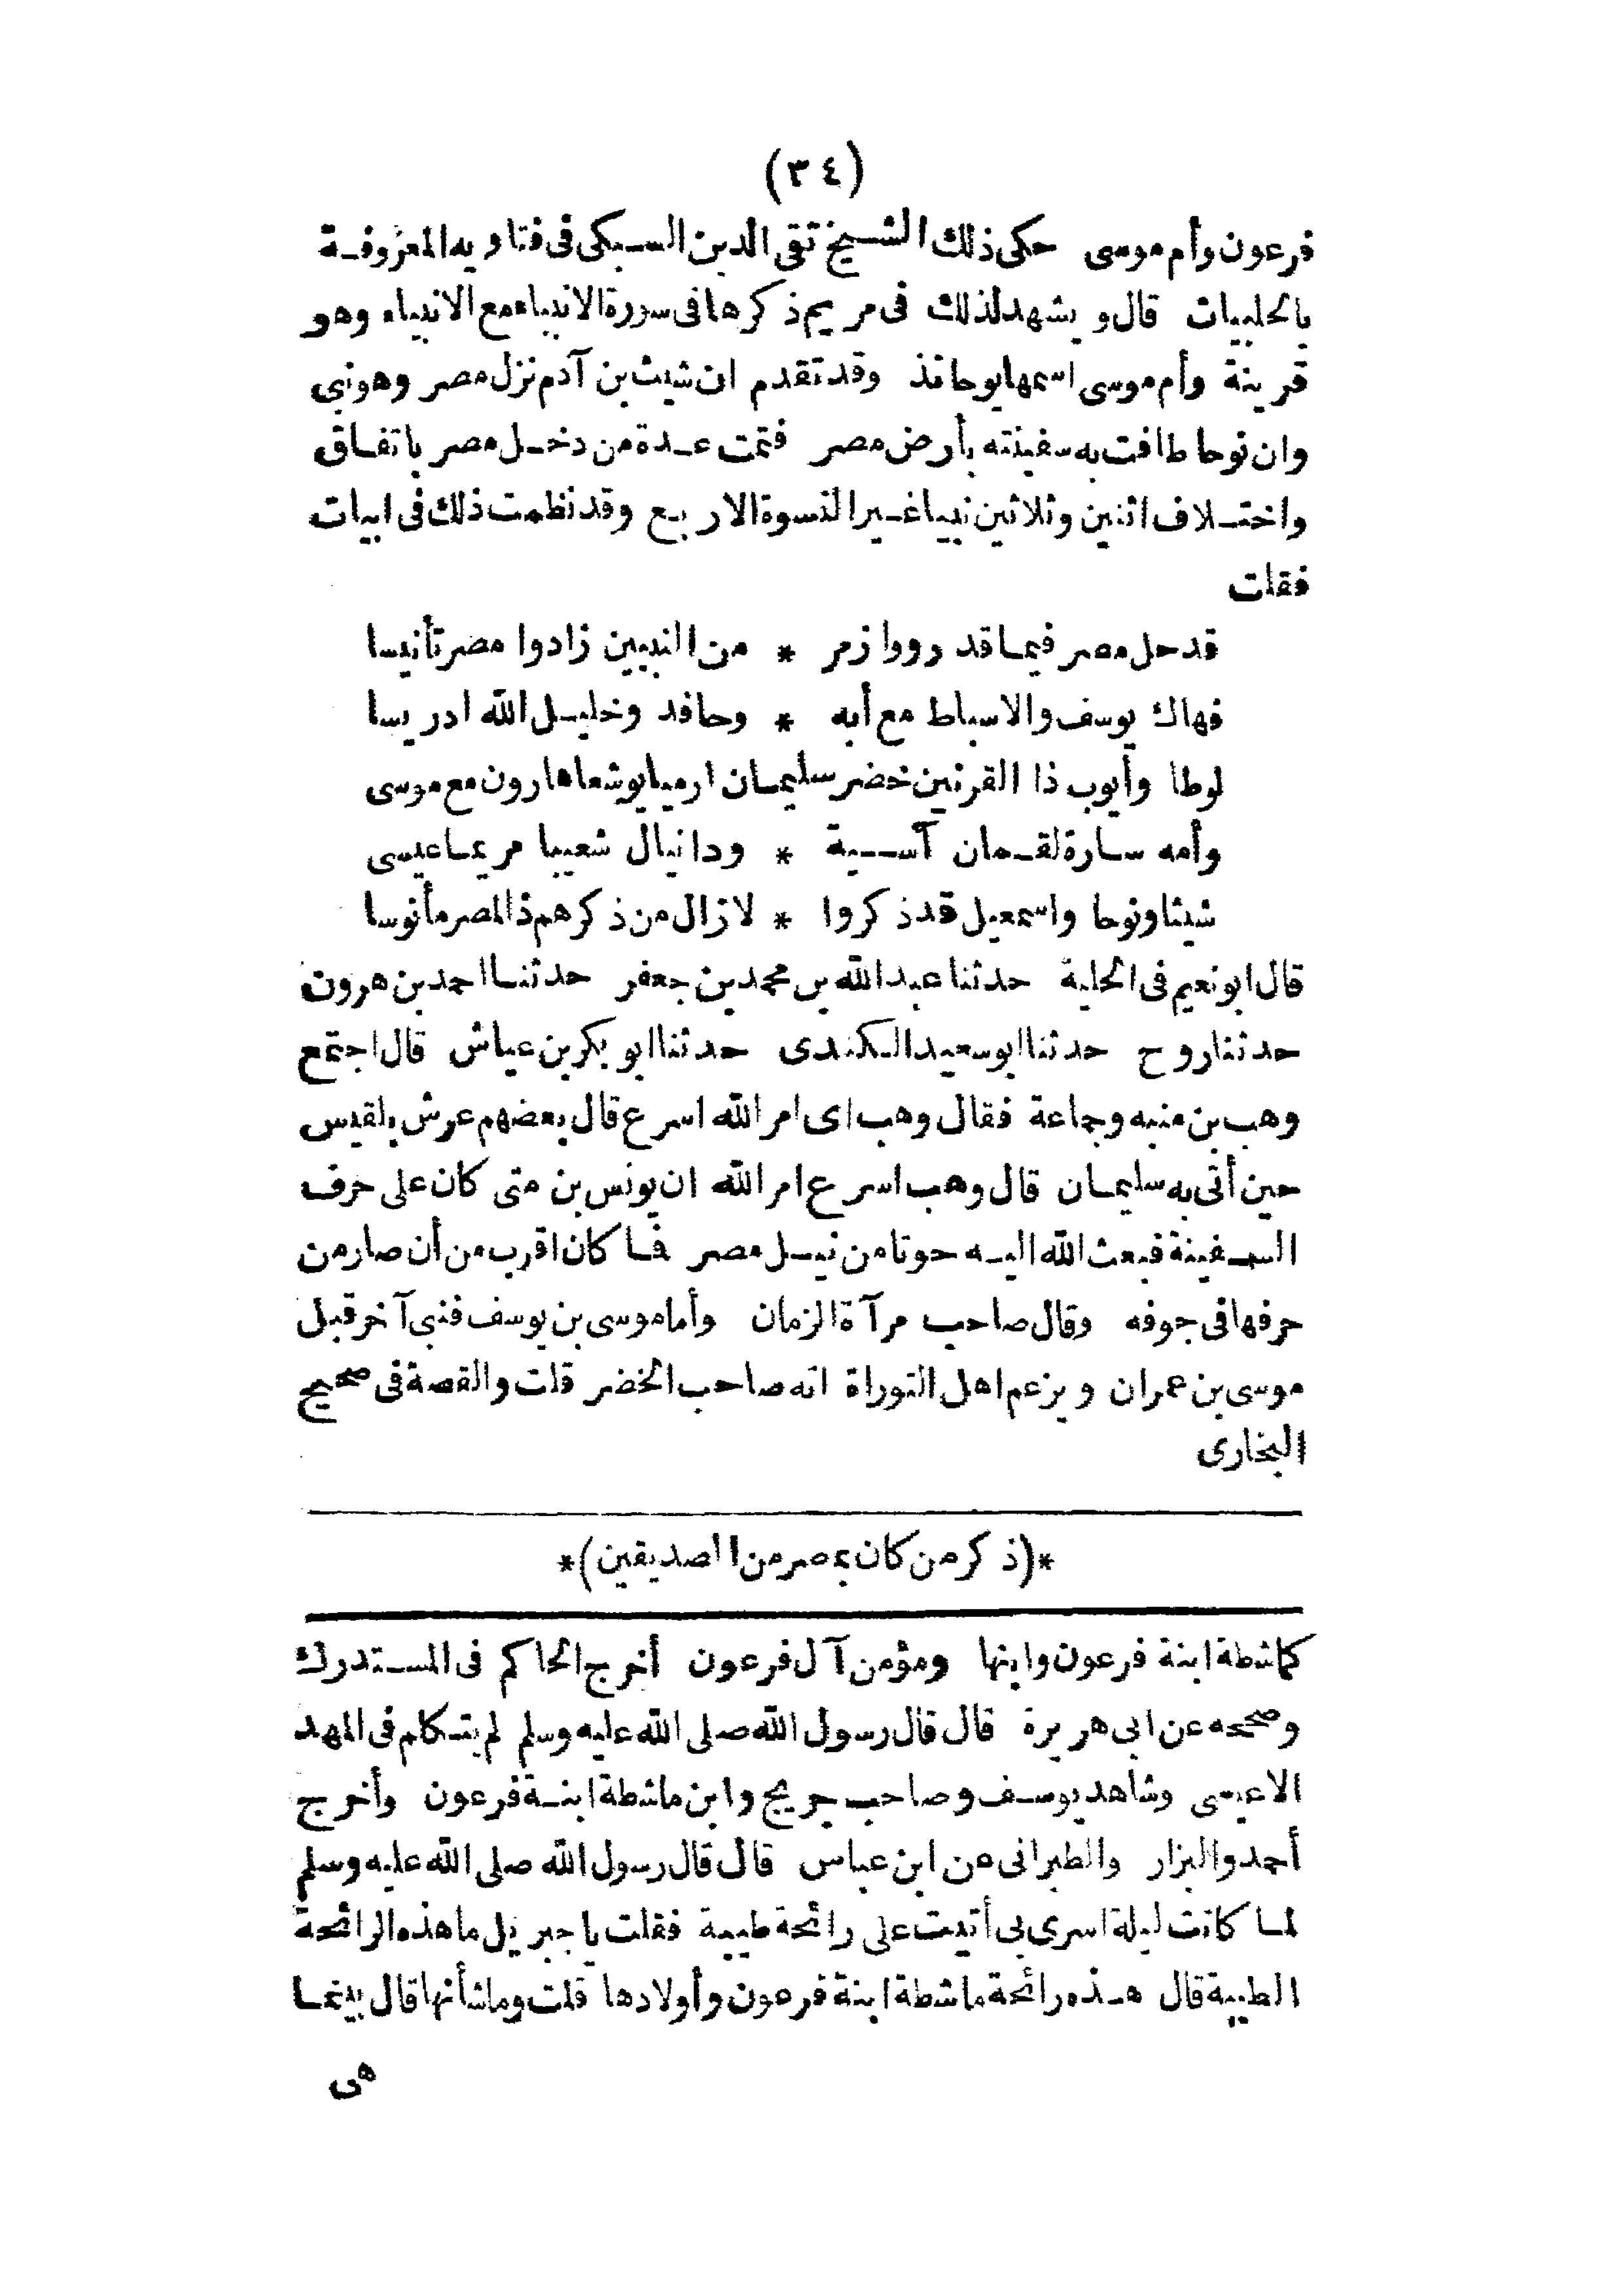 (٣٤)
فرعون وأم موسى حكى ذلك الشيخ تقى الدين السبكى فى فتاويه المعروفة
بالحلبيات قال ويشهد لذلك فى مريم ذكرها فى سورة الانبياء مع الانبياء وهو
قرينة وأم موسى اسمها يوحانذ وقد تقدم ان شيث بن آدم نزل مصر وهو نبي
وان نوحا طافت به سفينته بأرض مصر فتمت عدة من دخل مصر باتفاق
واختلاف اثنين وثلاثين نبيا غير النسوة الاربع وقد نظمت ذلك فى ابيات
فقلت
قد حل مصر فيما قد رووا زمر * من النبيين زادوا مصر تأنيسا
فهاك يوسف والاسباط مع أبه * وحافد وخليل الله ادريسا
لوطا وأيوب ذا القرنين خضر سليمان ارميا يوشعا هارون مع موسى
وأمه سارة لقمان آسية * ودانيال شعيبا مريما عيسى
شيثا ونوحا واسمعيل قد ذكروا * لا زال من ذكرهم ذا المصر مأنوسا
قال ابو نعيم فى الحلية حدثنا عبد الله بن محمد بن جعفر حدثنا احمد بن هرون
حدثنا روح حدثنا ابو سعيد الكندى حدثنا ابو بكر بن عياش قال اجتمع
وهب بن منبه وجماعة فقال وهب اى امر الله اسرع قال بعضهم عرش بلقيس
حين أتى به سليمان قال وهب اسرع امر الله ان يونس بن متى كان على حرف
السفينة فبعث الله اليه حوتا من نيل مصر فما كان اقرب من أن صار من
حرفها فى جوفه وقال صاحب مرآة الزمان وأما موسى بن يوسف فنبى آخر قبل
موسى بن عمران ويزعم اهل التوراة انه صاحب الخضر قلت والقصة فى صحيح
البخارى
*(ذكر من كان بمصر من الصديقين)*
كماشطة ابنة فرعون وابنها ومؤمن آل فرعون أخرج الحاكم فى المستدرك
وصححه عن ابى هريرة قال قال رسول الله صلى الله عليه وسلم لم يتكلم فى المهد
الا عيسى وشاهد يوسف وصاحب جريج وابن ماشطة ابنة فرعون وأخرج
أحمد والبزار والطبرانى عن ابن عباس قال قال رسول الله صلى الله عليه وسلم
لما كانت ليلة اسرى بى أتيت على رائحة طيبة فقلت يا جبريل ما هذه الرائحة
الطيبة قال هذه رائحة ماشطة ابنة فرعون وأولادها قلت وما شأنها قال بينما
هى